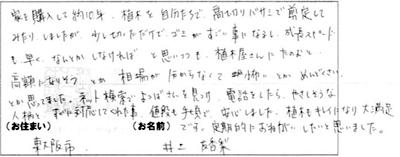 家を購入して約10年、植木を自分たちで、高切りバサミで剪定して
みたりしましたが、少し切っただけで、ゴミがすごい事になるし、成長スピード
も早く、なんとかしなければと思いつつも、植木屋さんにたのむと、
高額になりそうとか相場が分からなくて恐怖とかめんどくさい
とか思ってました。ネット検索で 見つけ、電話をしたら、やさしそうな
人柄と、すぐ対応してくれた事、値段も手頃で、安心しました。植木もキレイになり大満足
(お住まい) (お名前) です。定期的にお願いしたいと思いました。
東大阪市 井上